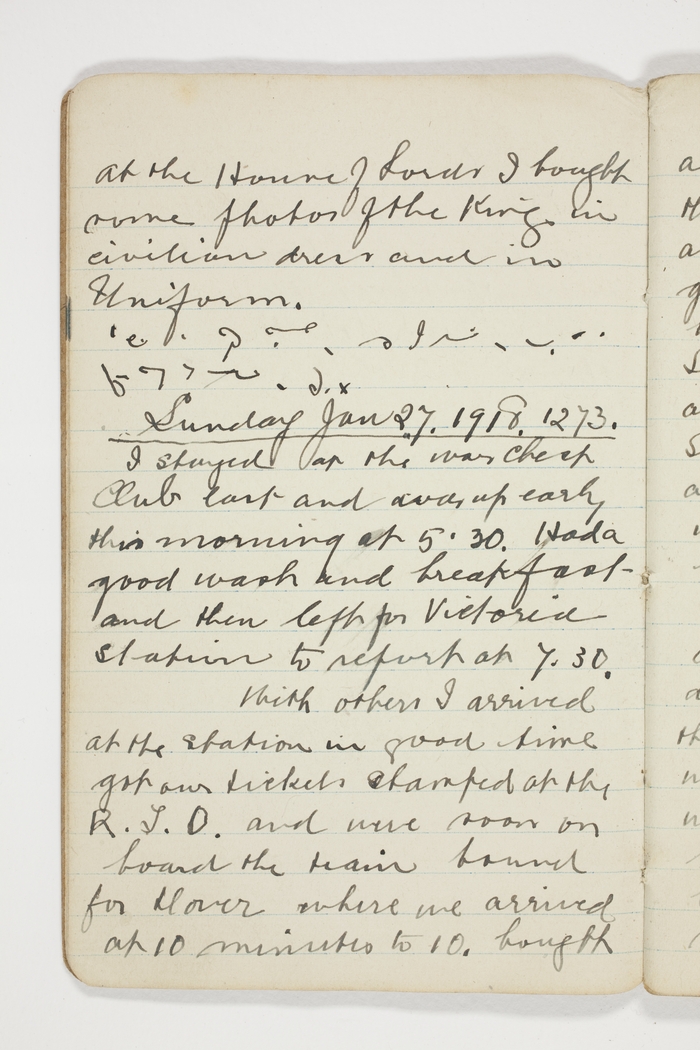 at the House of Lords I bought
some photos of the King in
civilian dress and in
Uniform.
Sunday Jan 27. 1918. 1273.
I stayed at the war chest
Club last and was up early
this morning at 5.30. Had a
good wash and breakfast
and then left for Victoria
Station to report at 7.30.
With others I arrived
at the station in good time
got our tickets stamped at the
R.T.O. and were soon on
board the train bound
for Dover where we arrived
at 10 minutes to 10. bought